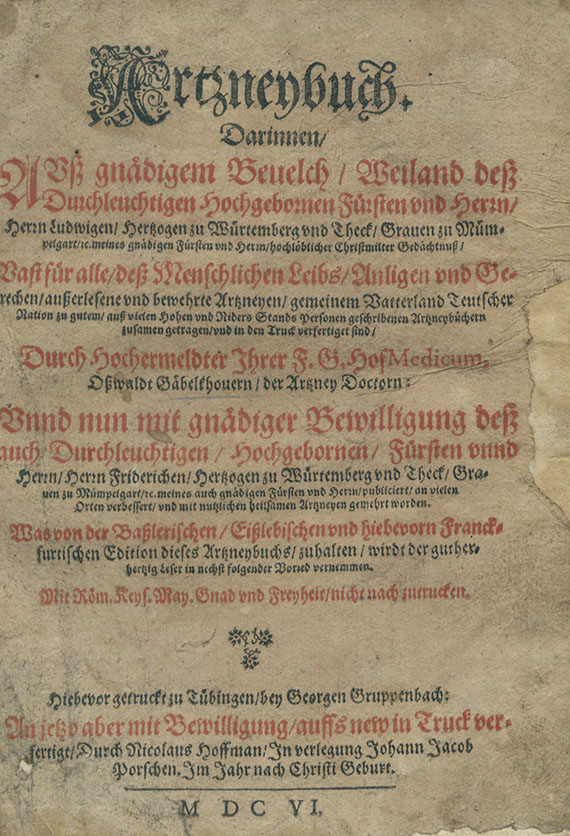 Artzneybuch.
Darinnen/
AVß gnädigem Beuelch / Weiland deß
Durchleuchtigen Hochgebornen Fürsten vnd Herrn/
Herrn Ludwigen/ Hertzogen zu Würtemberg vnd Theck/ Grauen zu Müm-
pelgart/ɾc.meines gnädigen Fürsten vnd Herrn/hochlöblicher Christmilter Gedächtnuß/
Vast für alle/deß Menschlichen Leibs/ Anligen vnd Ge-
rechen/außerlesene vnd bewehrte Artzneyen/ gemeinem Vatterland Teutscher
Nation zu gutem/ auß vielen Hohen vnd Niders Stands Personen geschribenen Artzneybüchern
zusamen getragen/vnd in den Truck verfertiget sind/
Durch Hochermeldter Ihrer F. G. Hof Medicum,
Oßwaldt Gäbelkhouern/ der Artzney Doctorn:
Vnnd nun mit gnädiger Bewilligung deß
auch Durchleuchtigen/ Hochgebornen/ Fürsten vnnd
Herrn/ Herrn Friderichen/ Hertzogen zu Würtemberg vnd Theck/ Gra-
uen zu Mümpelgart/ɾc.meines auch gnädigen Fürsten vnd Herrn/publiciert/ an vielen
Orten verbessert/ vnd mit nutzlichen heilsamen Artzneyen gemehrt worden.
Was von der Baßlerischen/ Eißlebischen vnd hiebevorn Franck-
furtischen Edition dieses Artzneybuchs/ zuhalten/ wirdt der guther-
hertzig Leser in nechst folgender Vorred vernemmen.
Mit Röm. Keys. May. Gnad vnd Freyheit/nicht nach zutrucken.
Hiebevor getruckt zu Tübingen/bey Georgen Gruppenbach:
An jetzo aber mit Bewilligung/auffs new in Truck ver-
fertigt/ Durch Nicolaus Hoffman/ In verlegung Johann Jacob
Porschen. Im Jahr nach Christi Geburt.
M DC VI.